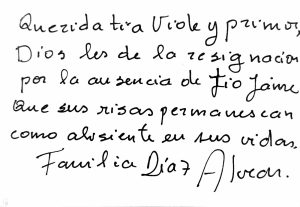 Querida tia Viole y primos,
Dios les de la resignación
por la ausencia de tio Jaime
Que sus risas permanescan
como aliciente en sus vidas.
Familia Díaz